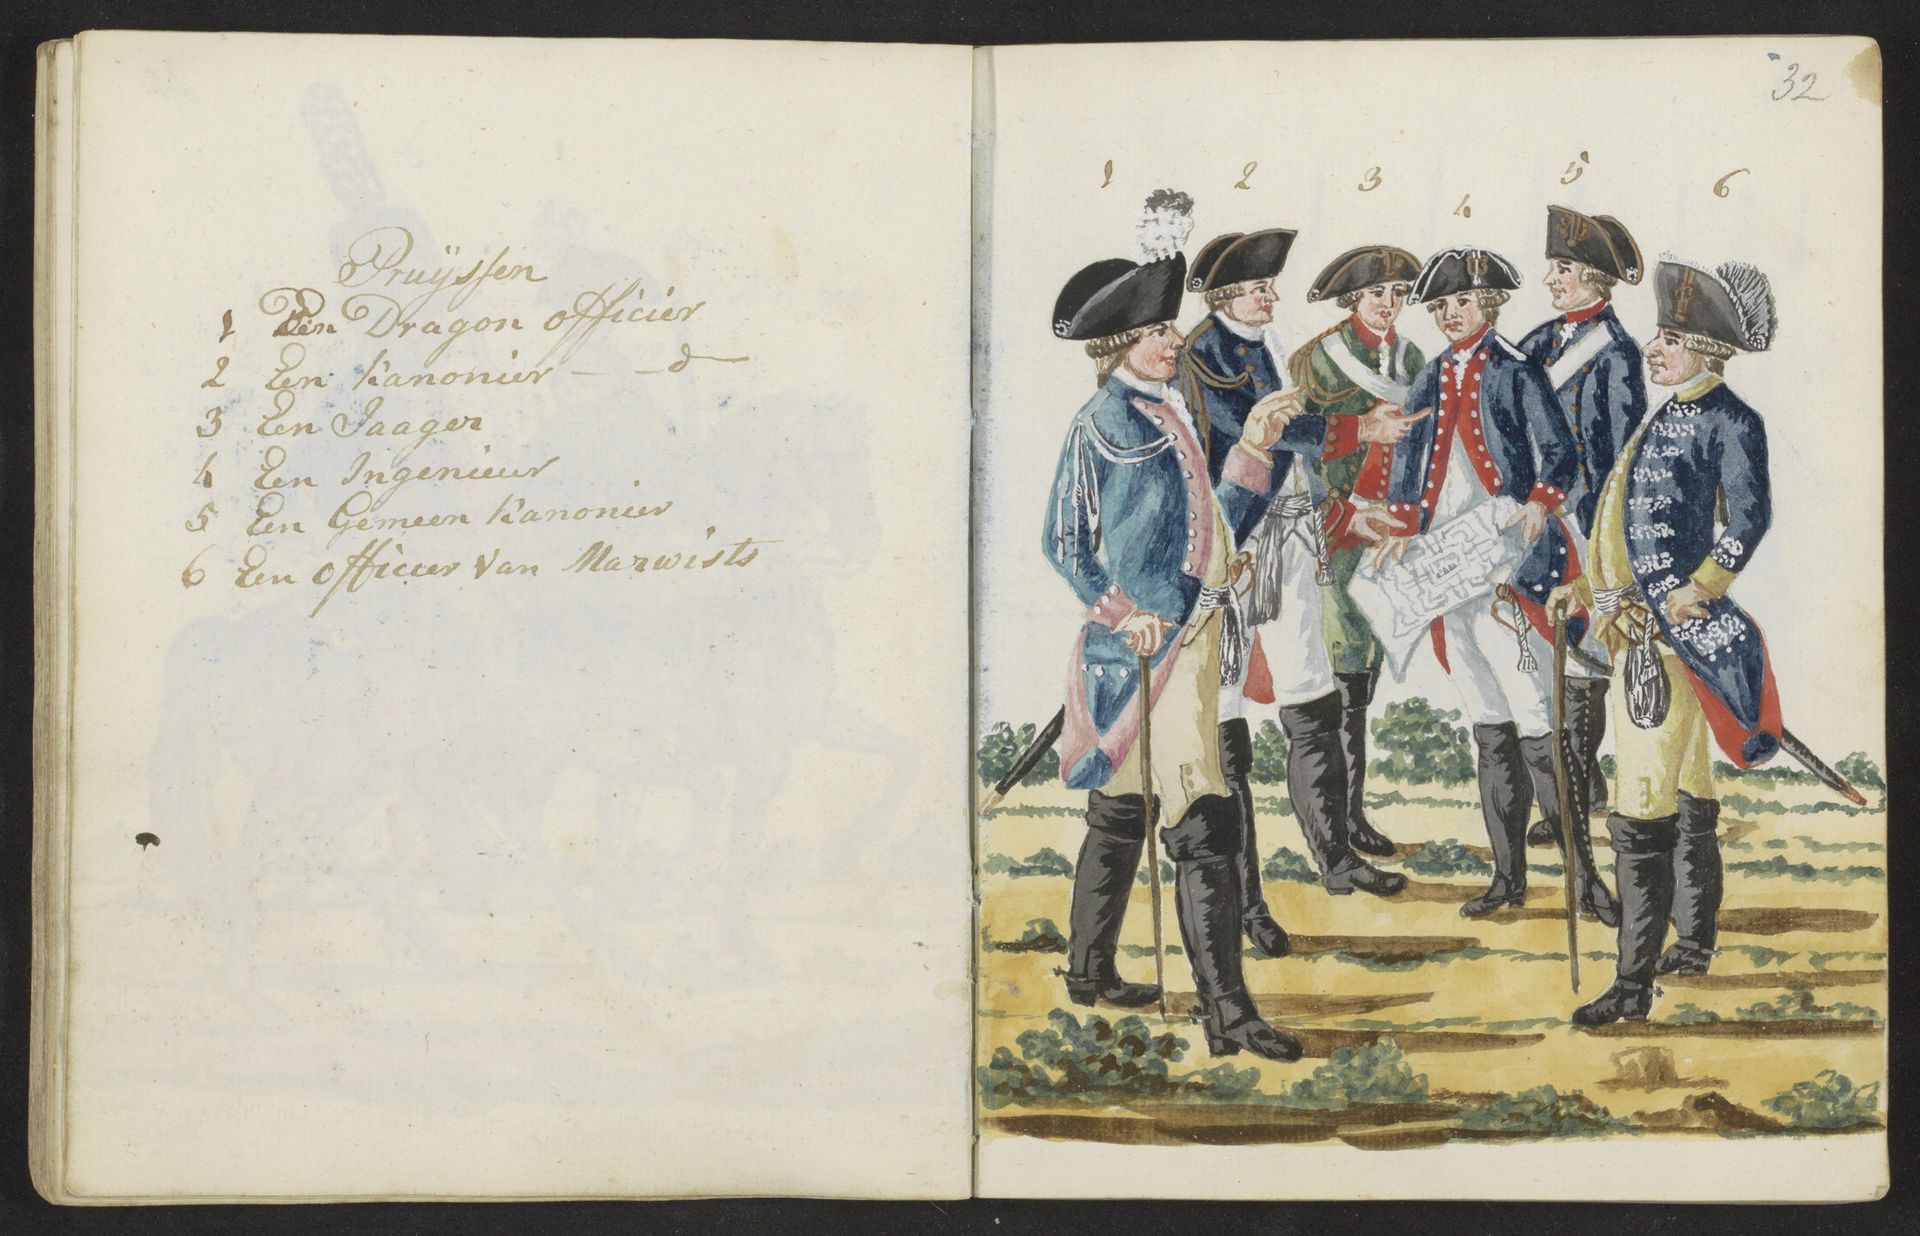 Pruÿssen
1 Een Dragon officier
2 Een Kanonier — — d°
3 Een Jaager
4 Een Ingenieur
5 Een Gemeen Kanonier
6 Een officier Van Marwists
32
1 2 3 4 5 6